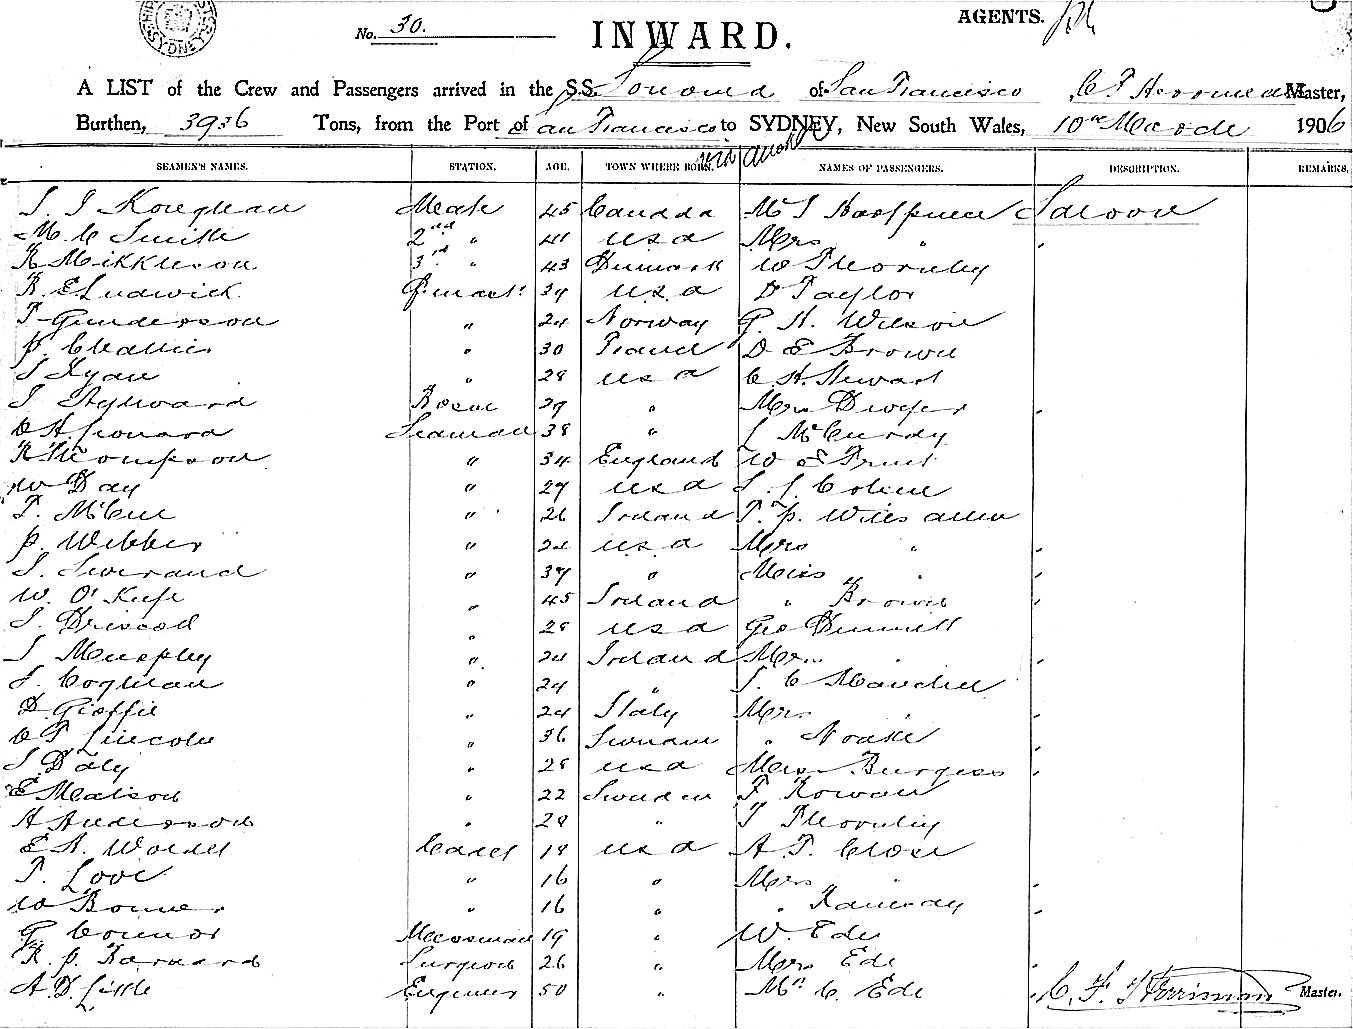 SYDNEY
No. 30.
INWARD.
AGENTS.
A LIST of the Crew and Passengers arrived in the S.S. Sonoma of San Francisco C F Herriman Master,
Burthen, 3936 Tons, from the Port of San Francisco to SYDNEY, New South Wales, 10th March 1906
via Auckland
SEAMEN'S NAMES. STATION. AGE. TOWN WHERE BORN. NAMES OF PASSENGERS. DESCRIPTION. REMARKS.
Mate 45 Canada Mr Saloon
M. C Smith 2nd " 41 U S A Mrs "
R Mikkleson 3rd " 43 Denmark W Thornley
R E Ludwick 39 U S A D Taylor
T Gunderson " 24 Norway G. H. Wilson
P. " 30 D E Brown
J Ryan " 28 U S A C. H. Stewart
J Aylward 29 " Mrs Dwyer
C H Leonard Seaman 38 " J McCurdy
R Thompson " 34 England W E
W Day " 27 U S A J. J. Cohen
T. McCue " 26 Ireland T. P. Allen
P. Webber " 24 U S A Mrs "
" 37 " Miss "
W. O'Keefe " 45 Ireland " Brown
J. Driscoll " 28 U S A Geo Dunnett
J Murphy " 24 Ireland Mrs "
J. Coghlan " 24 " J. C
D Gioffie " 24 Italy Mrs "
C F Lincoln " 36 Sweden "
J Daly " 28 U S A Miss Burgess
E Matson " 22 Sweden F Rowan
A Anderson " 28 " T Thornley
E A. Cadet 18 U S A A. T. Close
T. Love " 16 " Mrs "
W Bonner " 16 " "
G Connor Messman 19 " W. Ede
R. P. Surgeon 26 " Mrs Ede
A. D. Little Engineer 50 " Mr C. Ede C. F. Herriman Master.